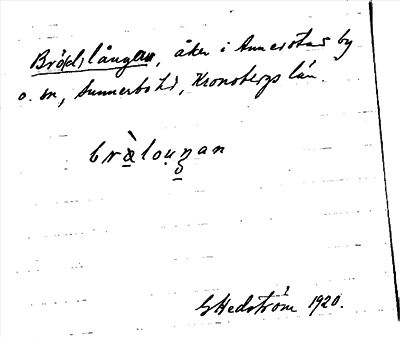 Brö(d)slången, åker i Annerstad by
o. sn, Sunnerbo hd, Kronobergs län.
brœ̀loųŋan
G Hedström 1920.